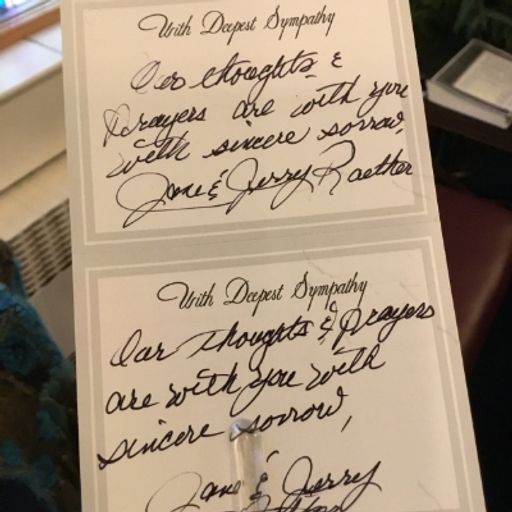 With Deepest Sympathy
Our thoughts &
Prayers are with you
with sincere sorrow,
Jane & Jerry Raether
With Deepest Sympathy
Our thoughts & prayers
are with you with
sincere sorrow,
Jane & Jerry